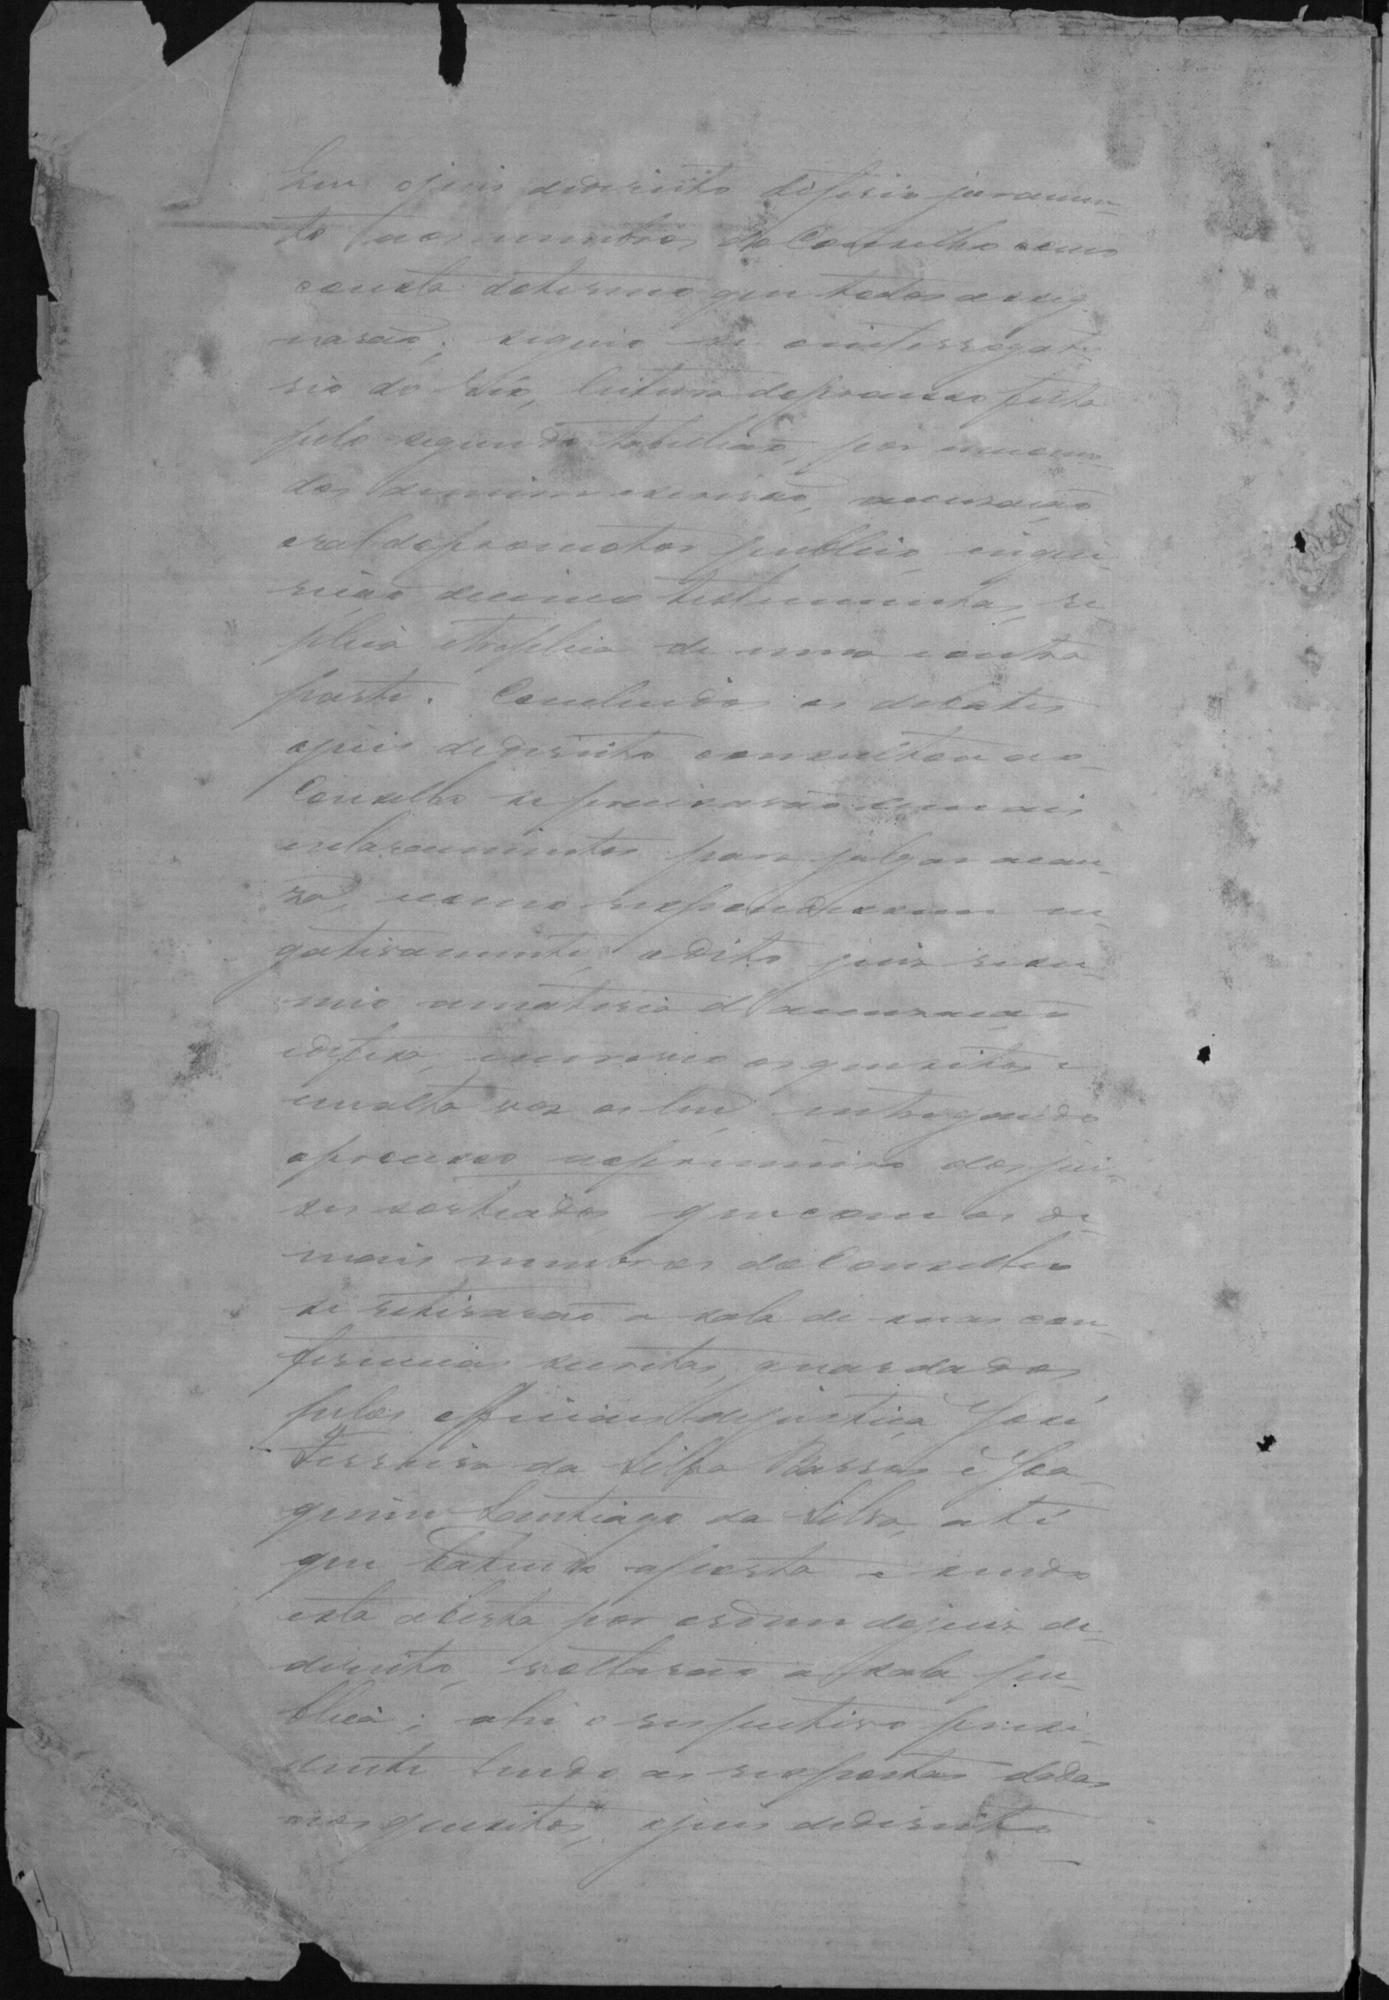 o juiz de direito deferio juramen-
to aos membros do Conselho como
consta do termo que todos assig-
narão; seguio se o interrogato-
rio do réo, leitura do processo feita
pelo segundo tabellião, por
escrivão, accusação
oral do promotor publico, inqui-
rição de cinco testemunhas, re-
plica e treplica de uma e outra
parte. Concluidos os debates
o juiz de direito consultou ao
Conselho se precisavão de mais
esclarecimentos para julgar a cau-
za, e como respondessem ne-
gativamente, o dito juiz resu-
mio a materia d'accusação
e defeza, escreveo os quesitos e
em alta voz os leu, entregando
o processo ao primeiro dos jui-
zes sorteados, que com os de-
mais membros do Conselho
se retirarão a sala de suas con-
ferencias secretas, guardados
pelos officiaes de justiça José
Ferreira da Silva Barros e Joa-
quim Santiago da Silva, até
que batendo a porta e sendo
esta aberta por ordem do juiz de
direito, voltarão a sala pu-
blica; ahi o respectivo presi-
dente lendo as respostas dadas
aos quesitos, o juiz de direito